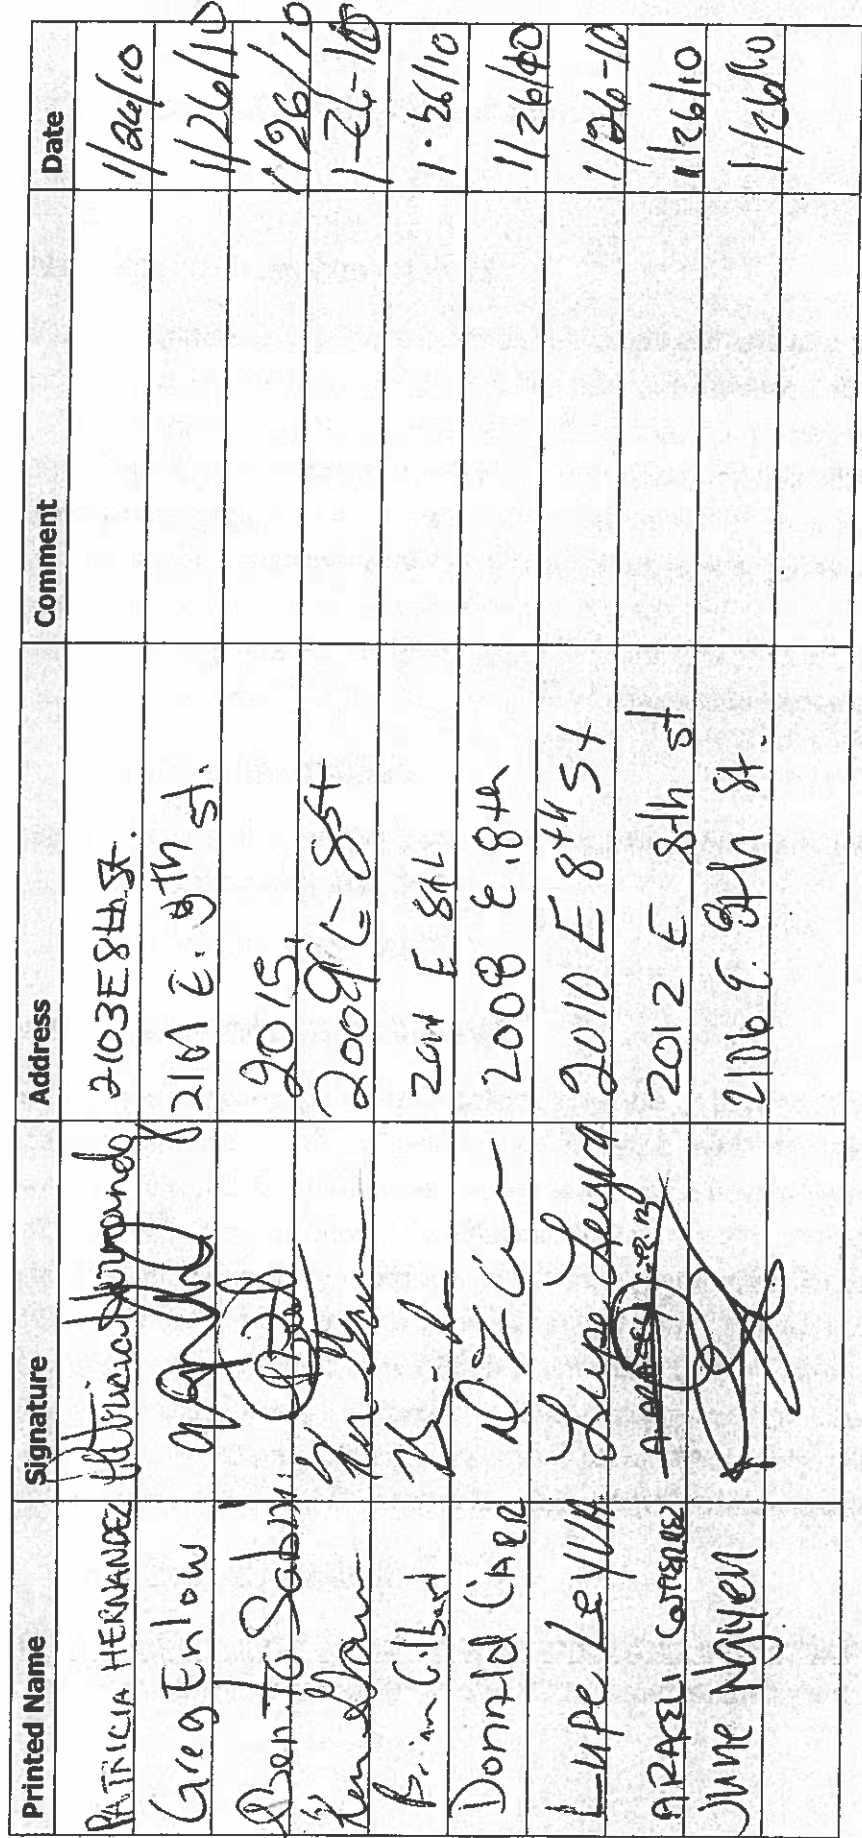 Printed Name Signature Address Comment Date
PATRICIA HERNANDEZ Patricia Hernandez 2103 E 8th St. 1/26/10
Greg Enlow 2101 E. 8th St. 1/26/10
Benito 2015 1/26/10
Ken 2009 E 8st 1-26-10
Brian Gilbert E 8th 1.26/10
Donald CARR 2008 E. 8th 1/26/10
Lupe LeYVA Lupe Leyva 2010 E 8th St 1/26-10
ARACELI 2012 E 8th st 1/26/10
June Nguyen 2106 E. 8th St. 1/26/10